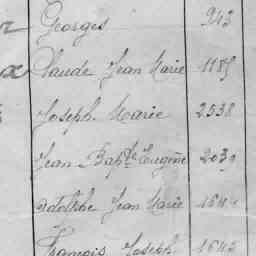 Georges 943
Claude Jean Marie 1185
Joseph Marie 2538
Jean Bapte Eugène 2039
Adolphe Jean Marie 1644
François Joseph 1642